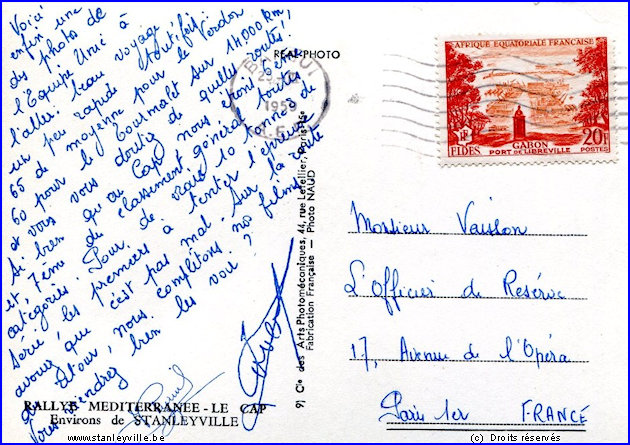 Voici
enfin une
des photo de
l'Equipe Unic à
l'aller. beau voyage,
un peu rapide toutefois.
65 de moyenne pour le Verdon
60 pour le Tourmalet sur 14000 km,
et vous vous doutez de quelles routes!
Si bien qu'au Cap nous étions 1er
et 7ème du classement général toutes
catégories. Pour de vrais 10 tonnes de
série, les premiers à tenter l'épreuve
avouez que c'est pas mal. Sur la route
du retour, nous complétons nos films.
Viendrez bien les voir ?
REAL PHOTO
1956
9) Cie des Arts Photomécaniques, 44, rue Letellier, Paris-15e
Fabrication Française — Photo NAUD
RALLYE MEDITERRANEE - LE CAP
Environs de STANLEYVILLE
AFRIQUE EQUATORIALE FRANÇAISE
RF
FIDES
GABON
PORT DE LIBREVILLE
20F
POSTES
Monsieur Vaislon
L'Officier de Réserve
17, Avenue de l'Opéra
Paris 1er FRANCE
www.stanleyville.be
(c) Droits réservés